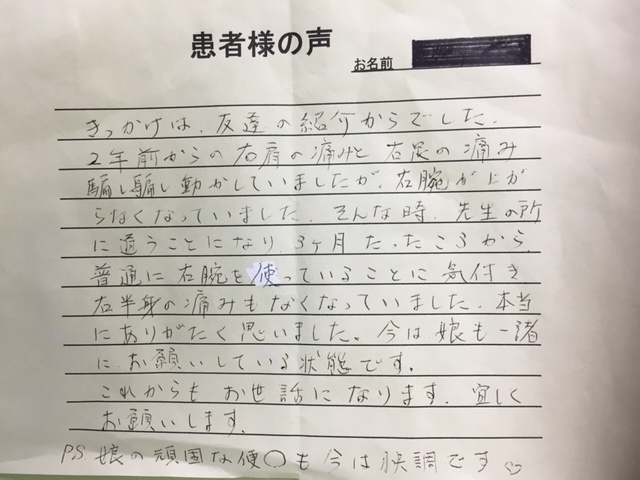 患者様の声
お名前
きっかけは、友達の紹介からでした。
2年前からの右肩の痛みと右足の痛み
騙し騙し動かしていましたが、右腕が上が
らなくなっていました。そんな時、先生の所
に通うことになり、3ヶ月たったころから、
普通に右腕を使っていることに気付き
右半身の痛みもなくなっていました。本当
にありがたく思いました。今は娘も一緒
にお願いしている状態です。
これからもお世話になります。宜しく
お願いします。
P.S. 娘の頑固な便〇も今は快調です♡